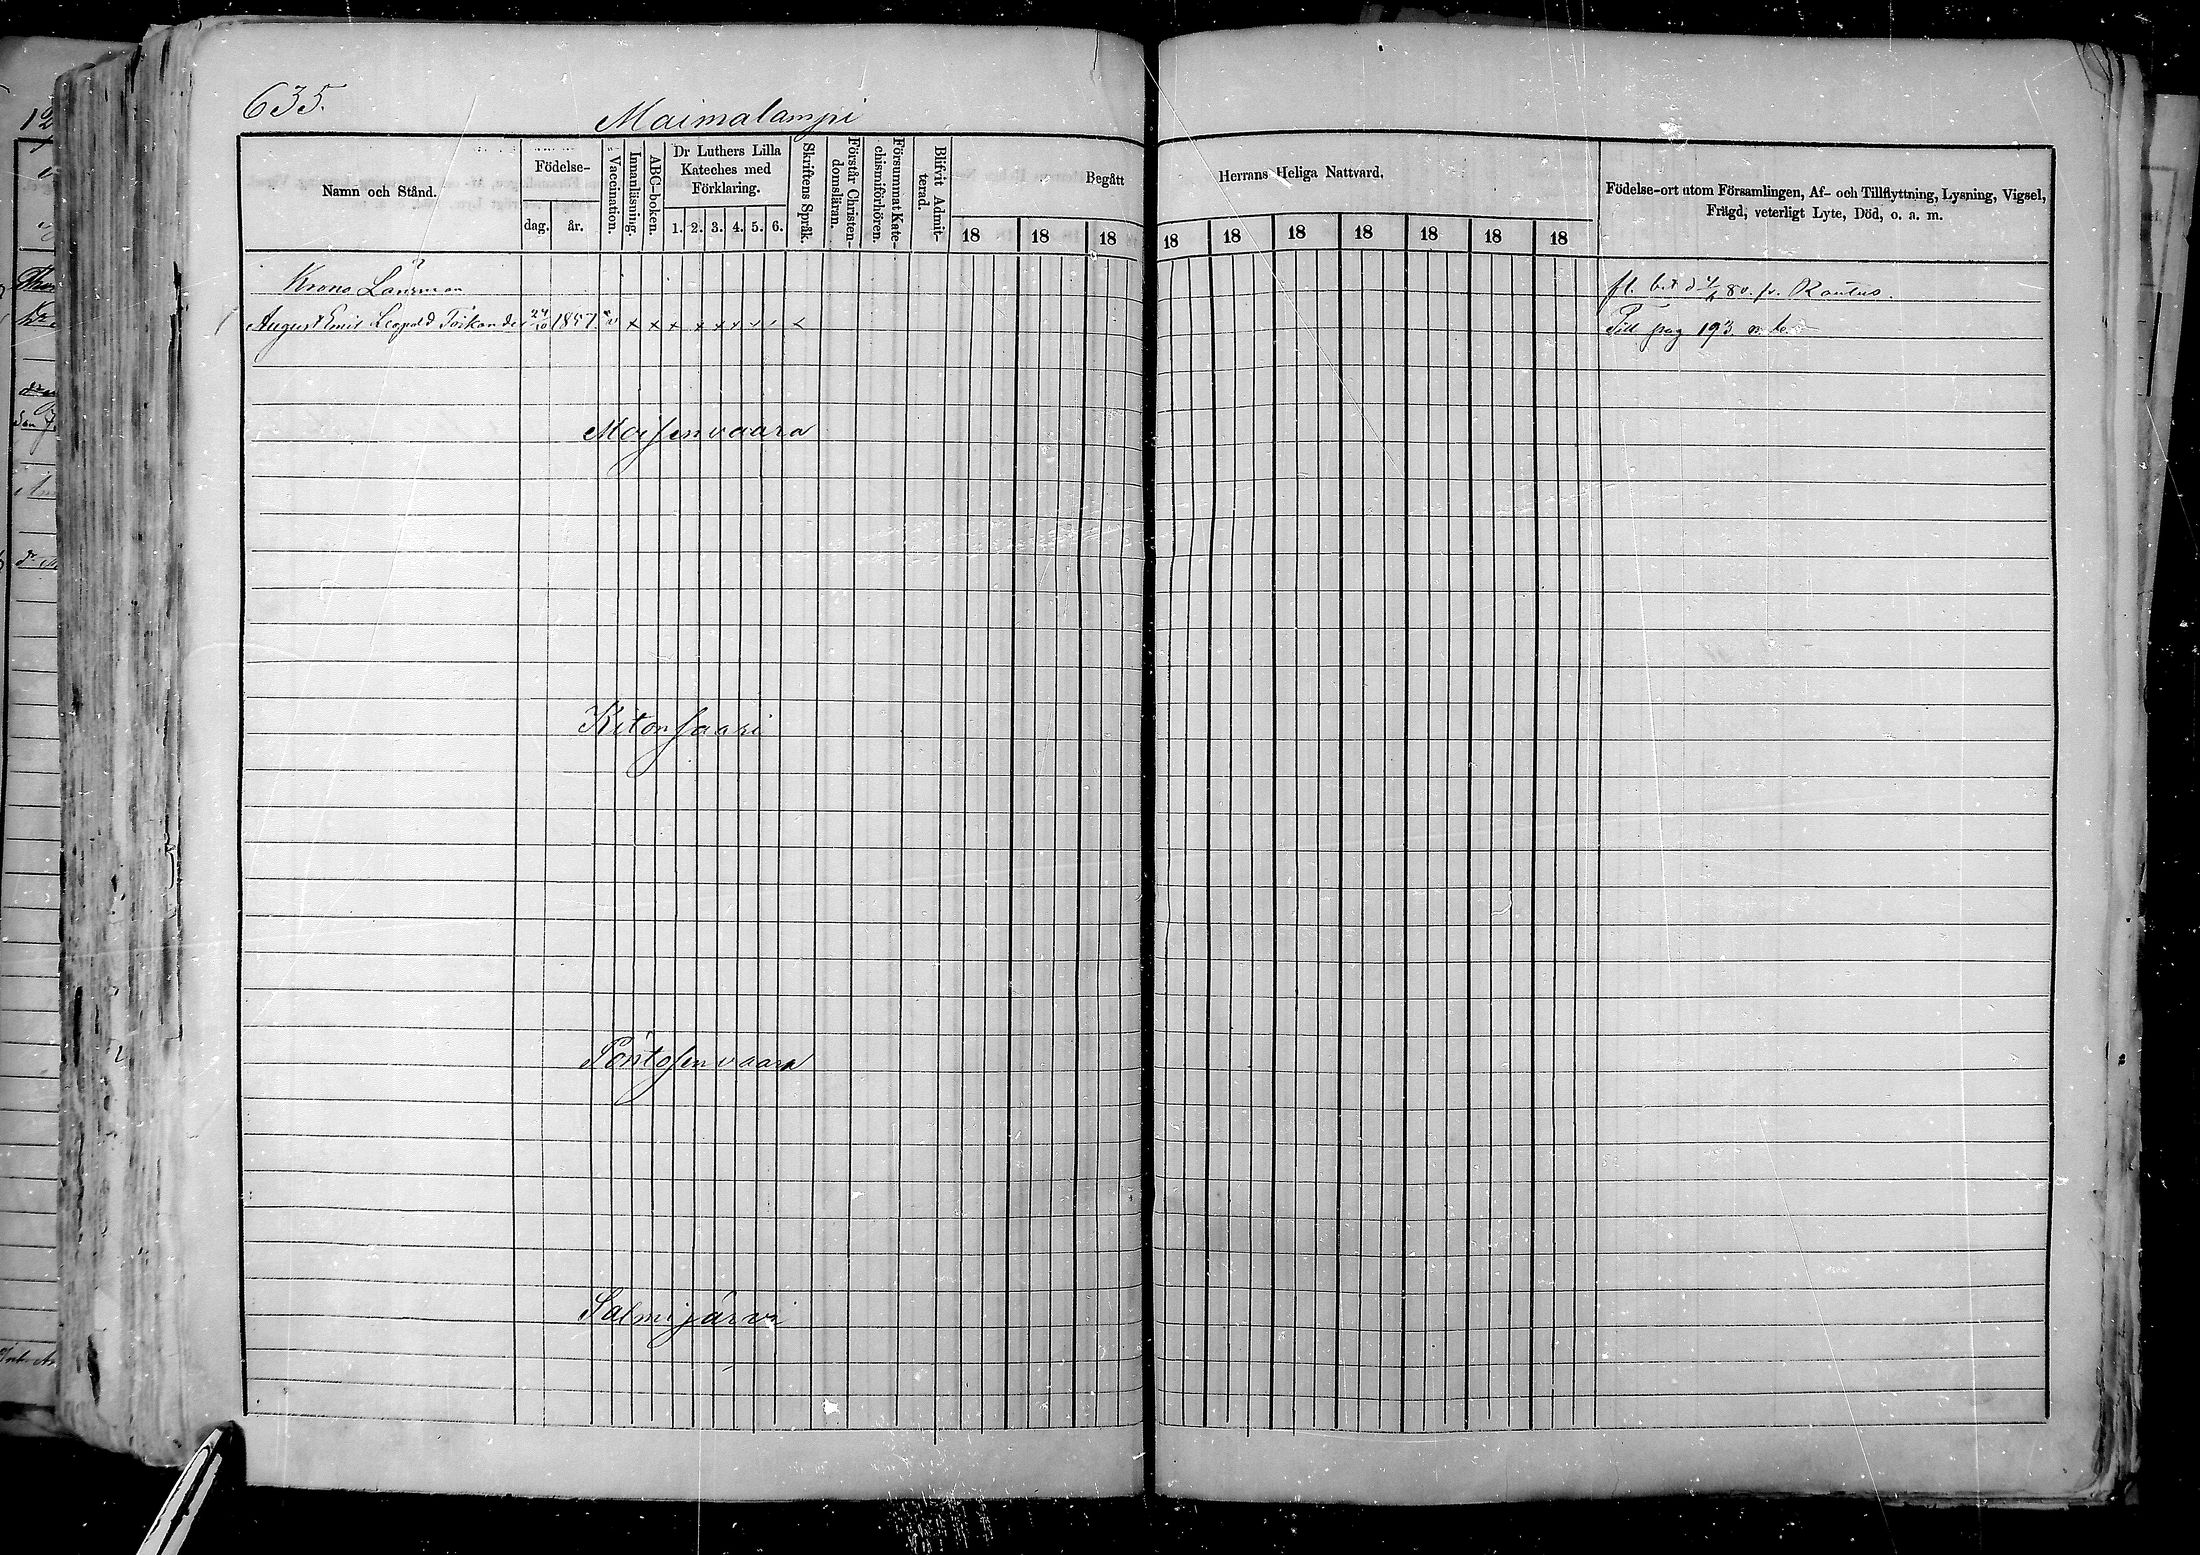 635.
Maimalampi
Namn och Stånd.
Födelse-
dag.
år.
Vaccination.
Innanläsning.
ABC-boken.
Dr Luthers Lilla
Kateches med
Förklaring.
1. 2. 3. 4. 5. 6.
Skriftens Språk.
Förstår Christen-
domsläran.
Försummat Kate-
chismiförhören.
Blifvit Admit-
terad.
Begått
Herrans Heliga Nattvard.
18 18 18 18 18 18 18 18 18 18
Födelse-ort utom Församlingen, Af- och Tillflyttning, Lysning, Vigsel,
Frägd, veterligt Lyte, Död, o. a. m.
Krono Länsman
fl. 80. fr. Rautus.
August Emil Leopold 24/10 1857 v x x x x x x x
Till pag 193
Moisenvaara
Kitonsaari
Pöntösenvaara
Salmijärvi